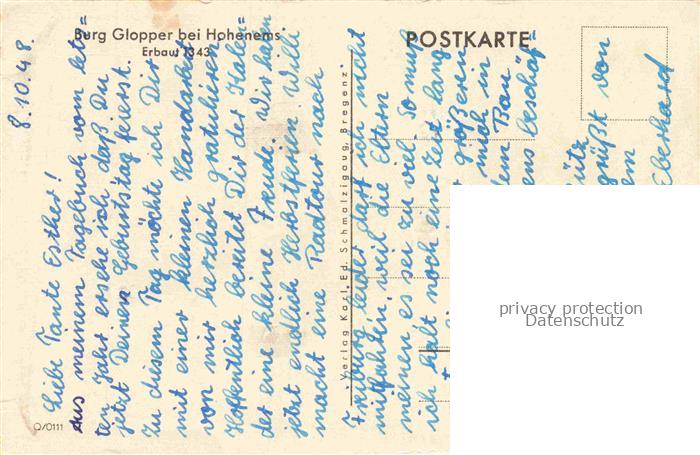 Burg Glopper bei Hohenems
Erbaut 1343
POSTKARTE
8.10.48.
Liebe Tante Esther!
Aus meinem Tagebuch vom letz=
ten Jahr ersehe ich, daß Du
jetzt Deinen Geburtstag feierst.
Zu diesem Tag möchte ich Dir
mit einer kleinen Handarbeit
von mir herzlich gratulieren
Hoffentlich bereitet Dir der Hafen=
der eine kleine Freude. Wir haben
jetzt endlich Herbstferien. Willi
macht eine Radtour nach
Freiburg, leider darf ich nicht
mitfahren, weil die Eltern
meinen es sei zu viel. So muß
ich halt noch eine Zeit lang
größeren
mich in
dem Bau
ens beschäf=
grüßt von
em
Eberhard
Verlag Karl Ed. Schmalzigaug, Bregenz
O/0111
privacy protection
Datenschutz